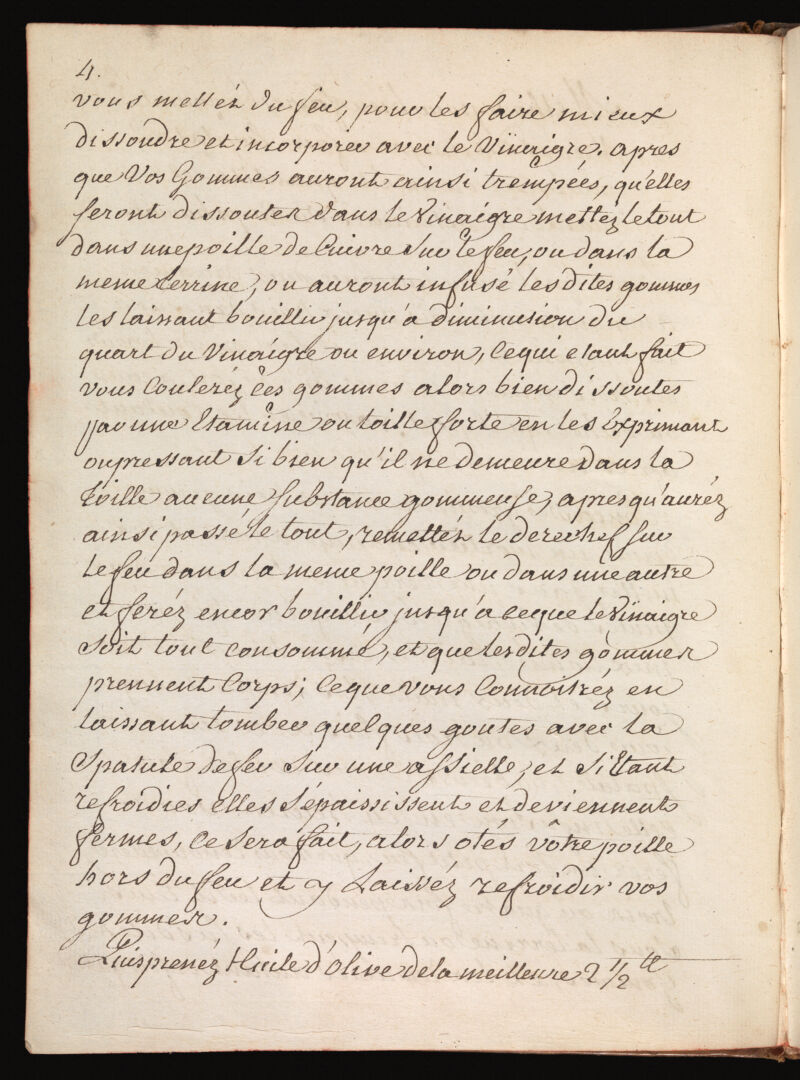 4.
vous mettéz du feu, pour les faire mieux
dissoudre et incorporer avec le Vinaigre. apres
que Vos Gommes auront ainsi trempées, qu'elles
seront dissoutes dans le Vinaigre mettéz le tout
dans une poille de Cuivre sur le feu, ou dans la
meme terrine, ou auront infusé les dites gommes
les laissant bouillir jusqu'a diminusion du
quart du Vinaigre ou environ, ce qui etant fait
vous Couleréz ces gommes alors bien dissoutes
par une Etamine ou toille forte en les Exprimant
ou pressant si bien qu'il ne demeure dans la
toille aucune substance gommeuse, apres qu'auréz
ainsi passé le tout, remettéz le derechef sur
le feu dans la meme poille ou dans une autre
et feréz encor bouillir jusqu'a ce que le Vinaigre
soit tout consommé, et que les dites gommes
prennent Corps; ce que vous Connoitréz en
laissant tomber quelques goutes avec la
Spatule de fer sur une assiette, et si Etant
refroidies elles s'épaississent et deviennent
fermes, ce sera fait, alors otés vôtre poille
hors du feu et y Laisséz refroidir vos
gommes.
Puis prenéz Huile d'Olive de la meilleure 2 1/2 ℔